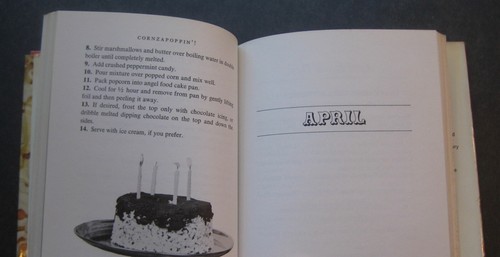 CORNZAPOPPIN'!
8. Stir marshmallows and butter over boiling water in double
boiler until completely melted.
9. Add crushed peppermint candy.
10. Pour mixture over popped corn and mix well.
11. Pack popcorn into angel food cake pan.
12. Cool for ½ hour and remove from pan by gently lifting
foil and then peeling it away.
13. If desired, frost the top only with chocolate icing, or
dribble melted dipping chocolate on the top and down the
sides.
14. Serve with ice cream, if you prefer.
APRIL